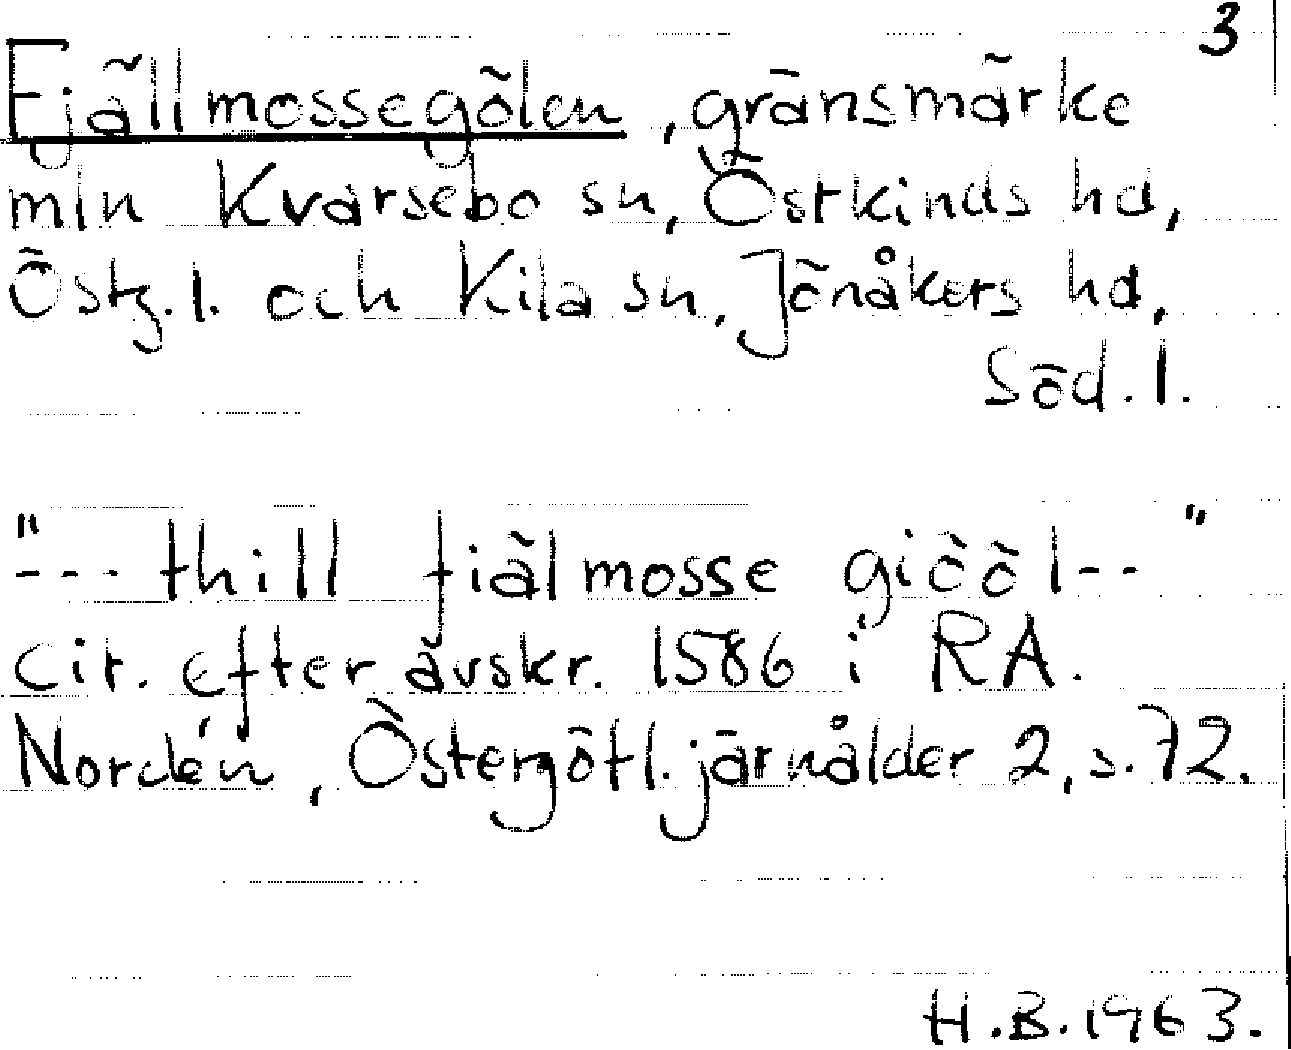 3
Fjällmossegölen, gränsmärke
mln Kvarsebo sn, Östkinds hd,
Östg.l. och Kila sn, Jönåkers hd,
Söd.l.
"--- thill fiälmosse giööl--"
Cit. efter avskr. 1586 i RA.
Nordén, Östergötl. järnålder 2, s. 72.
H.B. 1963.